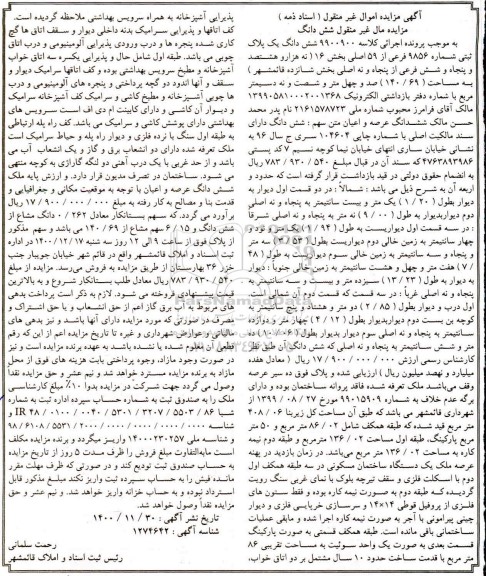 آگهی مزایده اموال غیر منقول ( اسناد ذمه )
مزایده مال غیر منقول شش دانگ
به موجب پرونده اجرائی کلاسه ۹۹۰۰۹۰۰ شش دانگ یک پلاک
ثبتی شماره ۹۸۵۶ فرعی از ۵۹ اصلی بخش ۱۶ ( نه هزار و هشتصد
و پنجاه و شش فرعی از پنجاه و نه اصلی بخش شانزده قائمشهر )
به مساحت ( ۶۹ / ۱۴۰ ) صد و چهل متر و شصت و نه دسیمتر
مربع با شماره دفتر بازداشتی الکترونیک
مالک آقای فرامرز محبوب شماره ملی ۲۱۶۱۵۷۸۷۲۳ نام پدر محمد
حسن مالک ششدانگ عرصه و اعیان متن سهم : شش دانگ دارای
سند مالکیت اصلی با شماره چاپی ۱۰۴۶۰۴ سری ج سال ۹۶ به
نشانی خیابان ساری انتهای خیابان نیما کوچه نسیم ۷ کد پستی
۴۷۶۳۸۹۳۹۸۶ که سند آن در قبال مبلغ ۵۴۰ / ۹۳۰ / ۷۸۳ ریال
به انضمام حقوق دولتی در قید بازداشت قرار گرفته است که حدود و
اربعه آن به شرح ذیل می باشد : شمالاً : در دو قسمت اول دیوار به
دیوار بطول ( ۲۰ / ۱ ) یک متر و بیست سانتیمتر به پنجاه و نه اصلی
دوم دیواربدیوار به طول ( ۰۰ / ۹ ) نه متر به پنجاه و نه اصلی شرقاً
: در سه قسمت اول دیواریست به طول ( ۹۴ / ۱ ) یک متر و نود و
چهار سانتیمتر به زمین خالی دوم دیواریست بطول ( ۵۳ / ۳ ) سه متر
و پنجاه و سه سانتیمتر به زمین خالی سوم دیواریست به طول ( ۴۸
/ ۷ ) هفت متر و چهل و هشت سانتیمتر به زمین خالی جنوباً : دیوار
به دیوار به طول ( ۲۳ / ۱۳ ) سیزده متر و بیست و سه سانتیمتر به
پنجاه و نه اصلی غرباً : در سه قسمت که قسمت دوم آن شمالی است
اول درب و دیوار بطول ( ۸۵ / ۲ ) دو متر و هشتاد و پنج سانتیمتر به
کوچه بن بست دوم دیواربدیوار بطول ( ۱۲ / ۴ ) چهار متر و دوازده
سانتیمتر به پنجاه و نه اصلی سوم دیوار بدیوار بطول
متر و شش سانتیمتر به پنجاه و نه اصلی که شش دانگ آن طبق نظر
کارشناس رسمی ارزش ۰۰۰ / ۰۰۰ / ۹۰۰ / ۱۷ ریال ( معادل هفده
میلیارد و نهصد میلیون ریال ) ارزیابی شده و پلاک فوق ده سیر عرصه
وقف می‌باشد ملک تعرفه شده فاقد پروانه ساختمان بوده و دارای
برگه عدم خلاف به شماره ۹۹۰۱۵۹۰۹ مورخ ۲۷ / ۰۸ / ۱۳۹۹ از
شهرداری قائمشهر می باشد که طبق آن مساحت کل زیربنا ۰۶ / ۴۰۸
متر مربع قید شده که طبقه همکف شامل ۰۲ / ۸۶ متر مربع و ۵۰ متر
مربع پارکینگ، طبقه اول مساحت ۰۲ / ۱۳۶ مترمربع و طبقه دوم نیمه
کاره به مساحت ۰۲ / ۱۳۶ متر مربع می‌باشد. در زمان بازدید در پهنه
عرصه ملک یک دستگاه ساختمان مسکونی در سه طبقه همکف اول
دوم با اسکلت فلزی و سقف تیرچه بلوک با نمای غربی سنگ رویت
گردیده که طبقه دوم به صورت نیمه کاره بوده و فقط ستون های
فلزی از پروفیل قوطی ۱۴×۱۴ و سرسازی خرپایی فلزی و دیوار
چینی پیرامونی با آجر به صورت نیمه کاره اجرا شده و مابقی عملیات
ساختمانی باقی مانده است. طبقه همکف قسمتی به صورت پارکینگ
قسمت بعدی به صورت یک واحد سوئیت به مساحت تقریبی ۸۶
متر مربع با قدمت ساخت حدود ۱۰ سال مشتمل بر دو اتاق خواب،
پذیرایی آشپزخانه به همراه سرویس بهداشتی ملاحظه گردیده است.
کف اتاقها و پذیرایی سرامیک بدنه داخلی دیوار و سقف اتاق ها گچ
کاری شده پنجره ها و درب ورودی پذیرایی آلومینیومی و درب اتاق
چوبی می باشد. طبقه اول شامل حال و پذیرایی یکسره سه اتاق خواب
آشپزخانه و مطبخ سرویس بهداشتی بوده و کف اتاقها سرامیک دیوار و
سقف و آنها اندود دو گچه پرداختی و پنجره های آلومینیومی و درب
ها چوبی آشپزخانه و مطبخ کاشی و سرامیک کف آشپزخانه سرامیک
و دیوار آن کاشی و دارای کابینت ام دی اف است سرویس های
بهداشتی دارای پوشش کاشی و سرامیک می باشد. کف راه پله ارتباطی
به طبقه اول سنگ با نرده فلزی و دیوار راه پله و حیاط سرامیک است
ملک تعرفه شده دارای دو انشعاب برق و گاز و یک انشعاب آب می
باشد و از حد غربی با یک درب آهنی دو لنگه گاراژی به کوچه منتهی
می شود. ساختمان در تصرف مدیون قرار دارد. و ارزش پایه ملک
شش دانگ عرصه و اعیان با توجه به موقعیت مکانی و جغرافیایی و
قدمت بنا و مصالح به کار رفته به مبلغ ۰۰۰ / ۰۰۰ / ۹۰۰ / ۱۷ ریال
برآورد می گردد. که سهم بستانکار معادل ۲۶۲ / ۰ دانگ مشاع از
شش دانگ و ۱۵ / ۶ سهم مشاع از ۶۹ / ۱۴۰ می باشد و سهم مذکور
از پلاک فوق از ساعت ۹ الی ۱۲ روز سه شنبه ۱۷ / ۱۲ / ۱۴۰۰ در اداره
ثبت اسناد و املاک قائمشهر واقع در قائم شهر خیابان جویبار جنب
خزر ۳۶ بهارستان از طریق مزایده به فروش می‌رسد. مزایده از مبلغ
۵۴۰ / ۹۳۰ / ۷۸۳ ریال معادل طلب بستانکار شروع و به بالاترین
قیمت پیشنهادی فروخته می شود. لازم به ذکر است پرداخت بدهی
های مربوط به آب برق گاز اعم از حق انشعاب و یا حق اشتراک و
مصرف در صورتی که مورد مزایده دارای آنها باشد و نیز بدهی های
مالیاتی و عوارض شهرداری و غیره تا تاریخ مزایده اعم از این که رقم
قطعی آن معلوم شده یا نشده باشد به عهده برنده مزایده است و نیز
در صورت وجود مازاد، وجوه پرداختی بابت هزینه های فوق از محل
مازاد به برنده مزایده مسترد خواهد شد و نیم عشر و حق مزایده نقداً
وصول می گردد جهت شرکت در مزایده بدوا ۱۰٪ مبلغ کارشناسی
ملک را به صندوق ثبت به شماره حساب سپرده اداره ثبت به شماره
شبا
شناسه
و شناسه ملی ۱۴۰۰۰۲۳۰۲۵۷ واریز میگردد و برنده مزایده مکلف
است مابه‌التفاوت مبلغ فروش را ظرف مدت ۵ روز از تاریخ مزایده
به حساب صندوق ثبت تودیع کند و در صورتی که ظرف مهلت مقرر
مانده فیش را به حساب سپرده ثبت واریز نکند مبلغ مذکور قابل
استرداد نبوده و به حساب خزانه واریز خواهد شد. و نیم عشر و حق
مزایده نقداً وصول خواهد شد.
تاریخ نشر آگهی : ۳۰ / ۱۱ / ۱۴۰۰
شناسه آگهی : ۱۲۷۴۶۴۲
رحمت سلمانی
رئیس ثبت اسناد و املاک قائمشهر